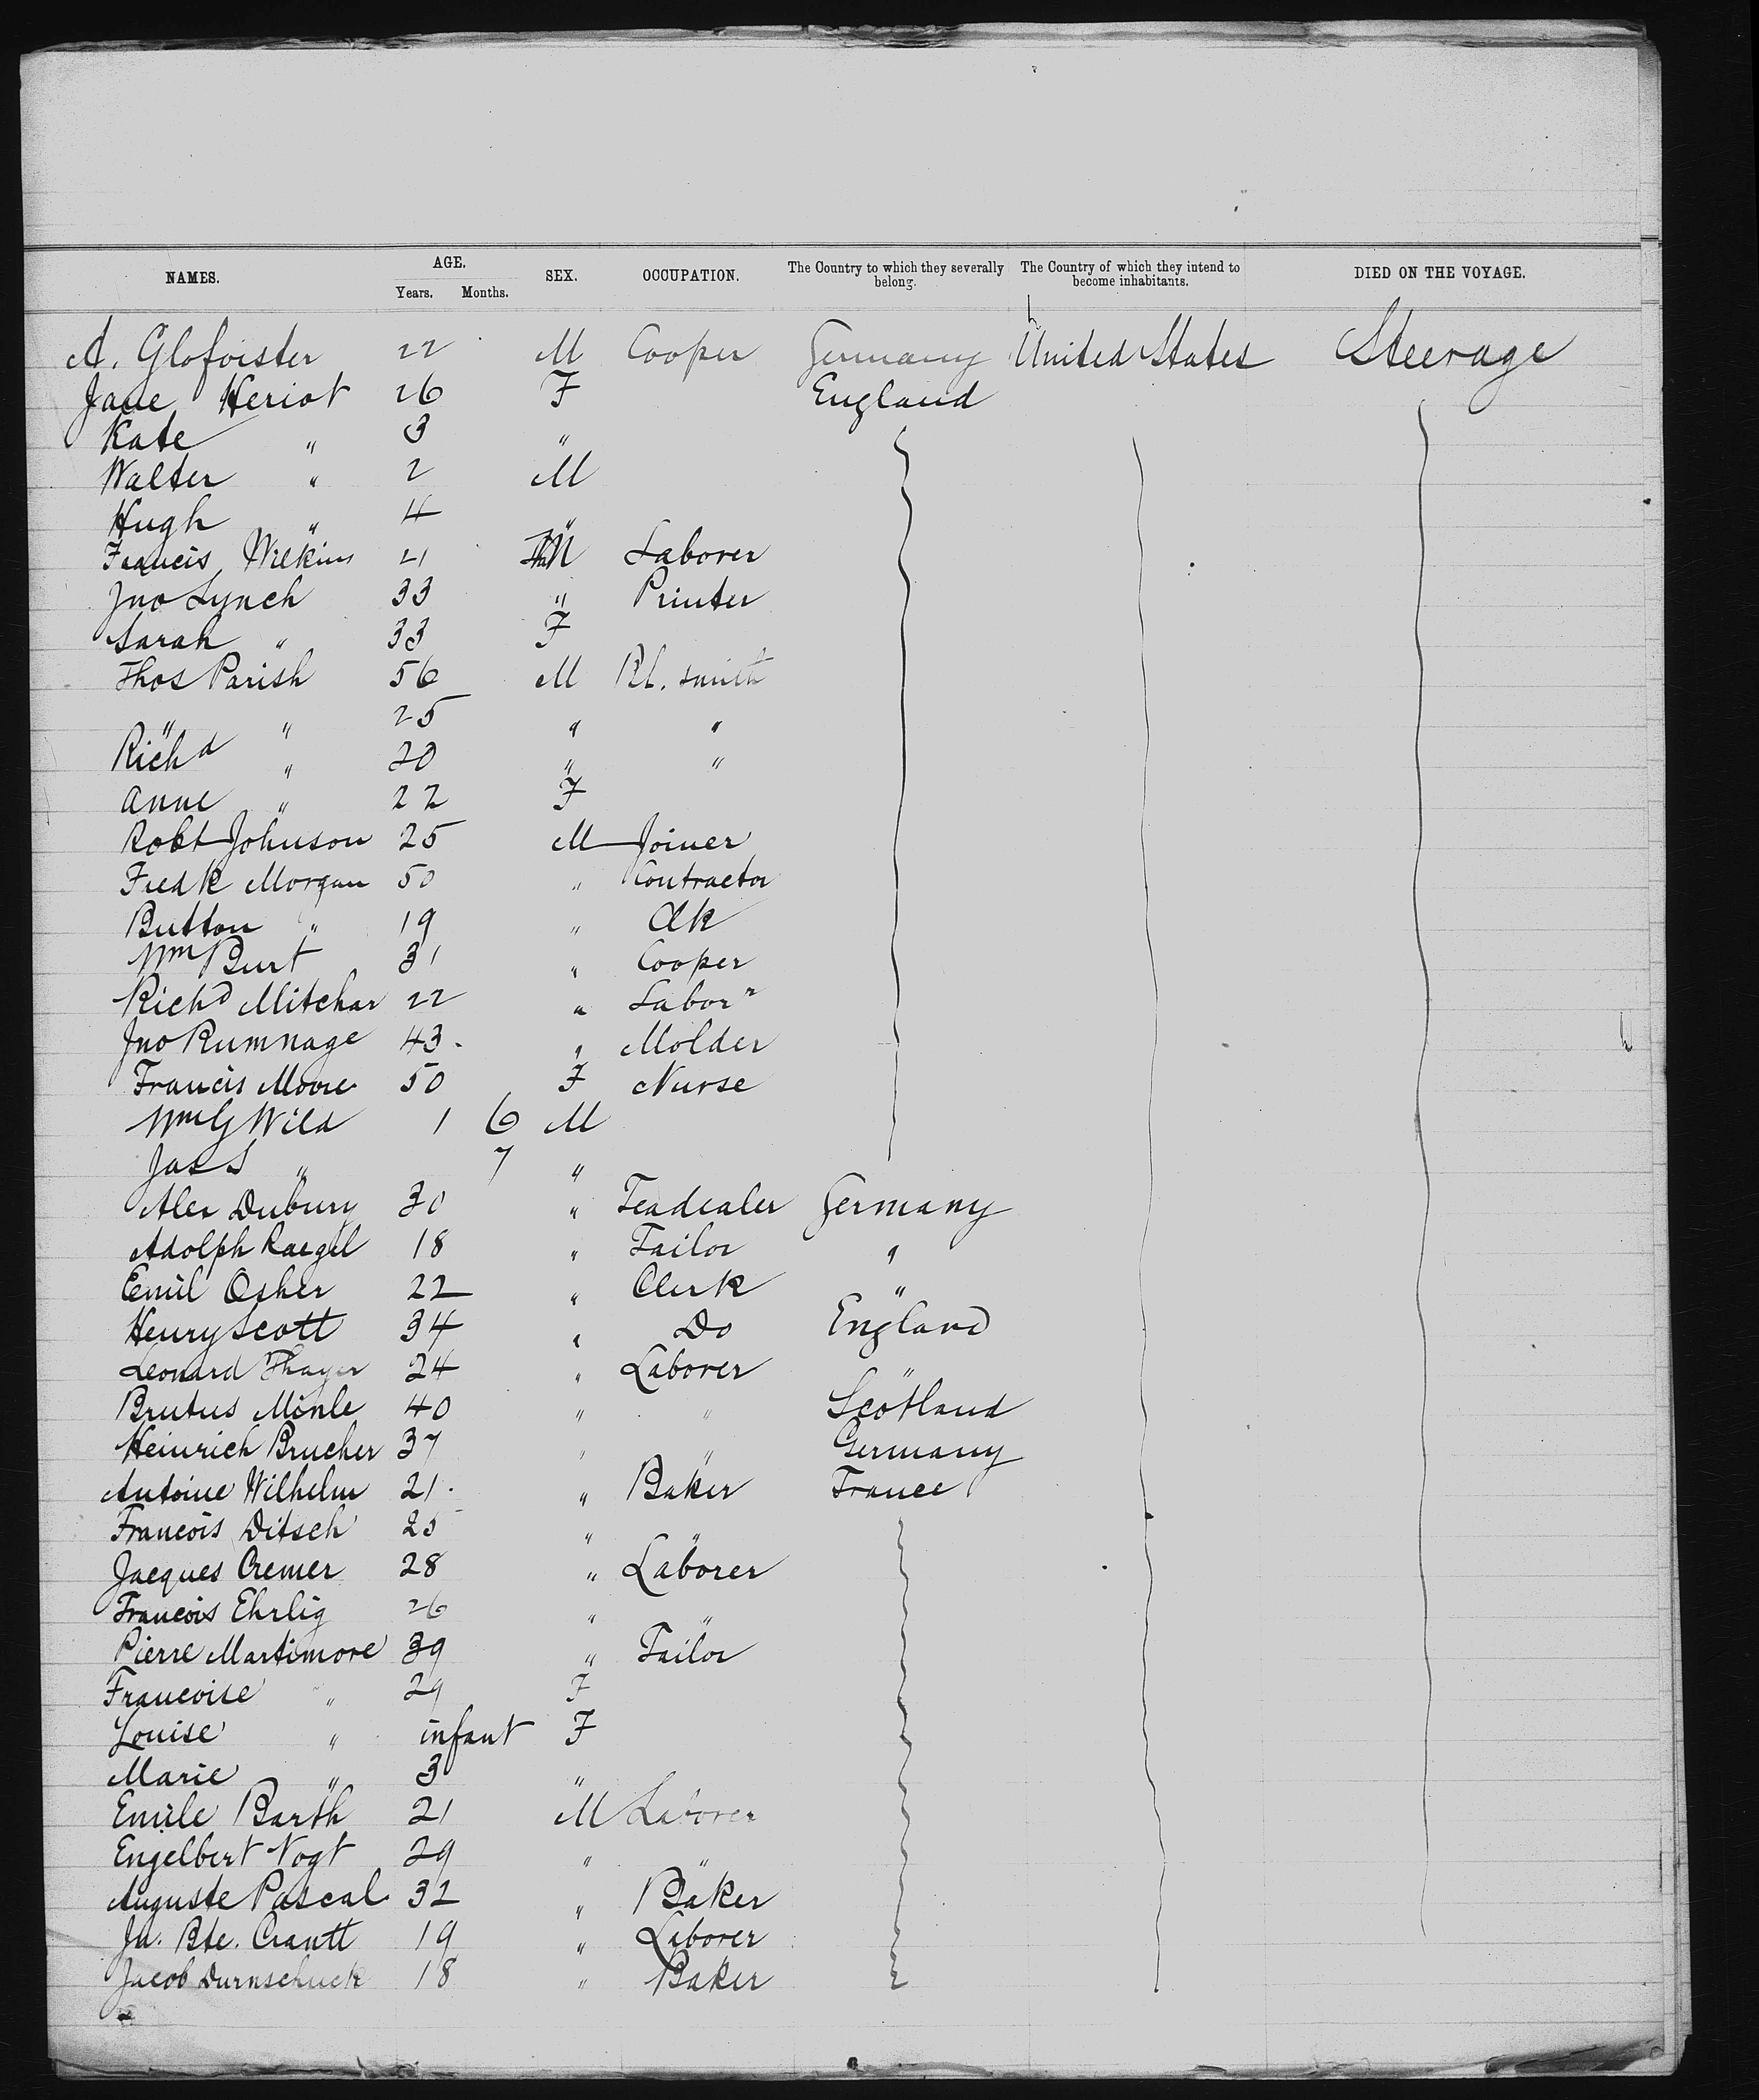 NAMES. AGE. Years. Months. SEX. OCCUPATION. The Country to which they severally belong. The Country of which they intend to become inhabitants. DIED ON THE VOYAGE.
A. Glofoister 22 M Cooper Germany United States Steerage
Jane Heriot 26 F England
Kate " 3 "
Walter " 2 M
Hugh " 4 "
Francis Wilkins 21 M Laborer
Jno Lynch 33 " Printer
Sarah " 33 F
Thos Parish 56 M Bl. smith
" " 25 " "
Richd " 20 " "
Anne " 22 F
Robt Johnson 25 M Joiner
Fredk Morgan 50 " Contractor
Button " 19 " Clk
Wm Burt 31 " Cooper
Richd Mitchar 22 " Labor r
Jno Rumnage 43 " Molder
Francis Moore 50 F Nurse
Wm G Wild 1 6 M
Jas S " 7 "
Alex Dubury 30 " Teadealer Germany
Adolph Raegel 18 " Tailor "
Emil Osher 22 " Clerk "
Henry Scott 34 " Do England
Leonard Thayer 24 " Laborer "
Brutus Minle 40 " " Scotland
Heinrich Brucher 37 " " Germany
Antoine Wilhelm 21 " Baker France
Francois Ditsch 25 " "
Jacques Cremer 28 " Laborer
Francois Ehrlig 26 " "
Pierre Martimore 39 " Tailor
Francoise " 29 F
Louise " infant F
Marie " 3 "
Emile Barth 21 M Laborer
Engelbert Vogt 29 " "
Auguste Pascal 32 " Baker
Jn. Bte. Crantt 19 " Laborer
Jacob Durnschuck 18 " Baker